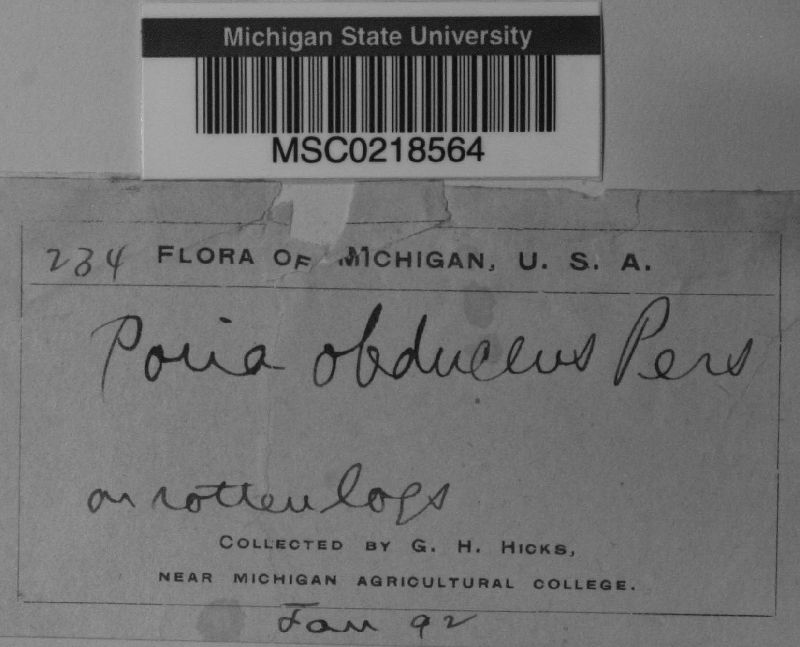 Michigan State University
MSC0218564
234 FLORA OF MICHIGAN, U. S. A.
Poria obducens Pers
on rotten logs
COLLECTED BY G. H. HICKS,
NEAR MICHIGAN AGRICULTURAL COLLEGE.
Jan 92